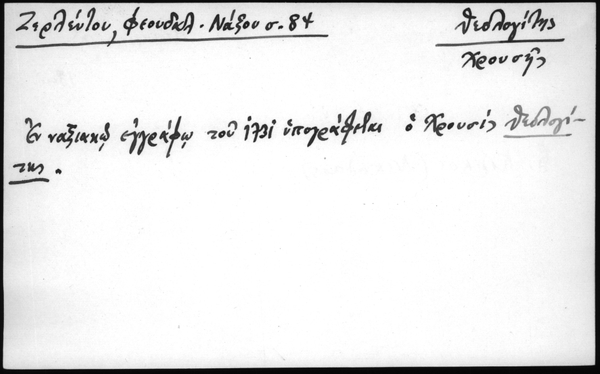 Ζερλέντου, Φεουδαλ. Νάξου σ. 84
Θεολογίτης
Χρουσῆς
Ἐν ναξιακῷ ἐγγράφῳ τοῦ 1731 ὑπογράφεται ὁ Χρουσῆς Θεολογί-
της.